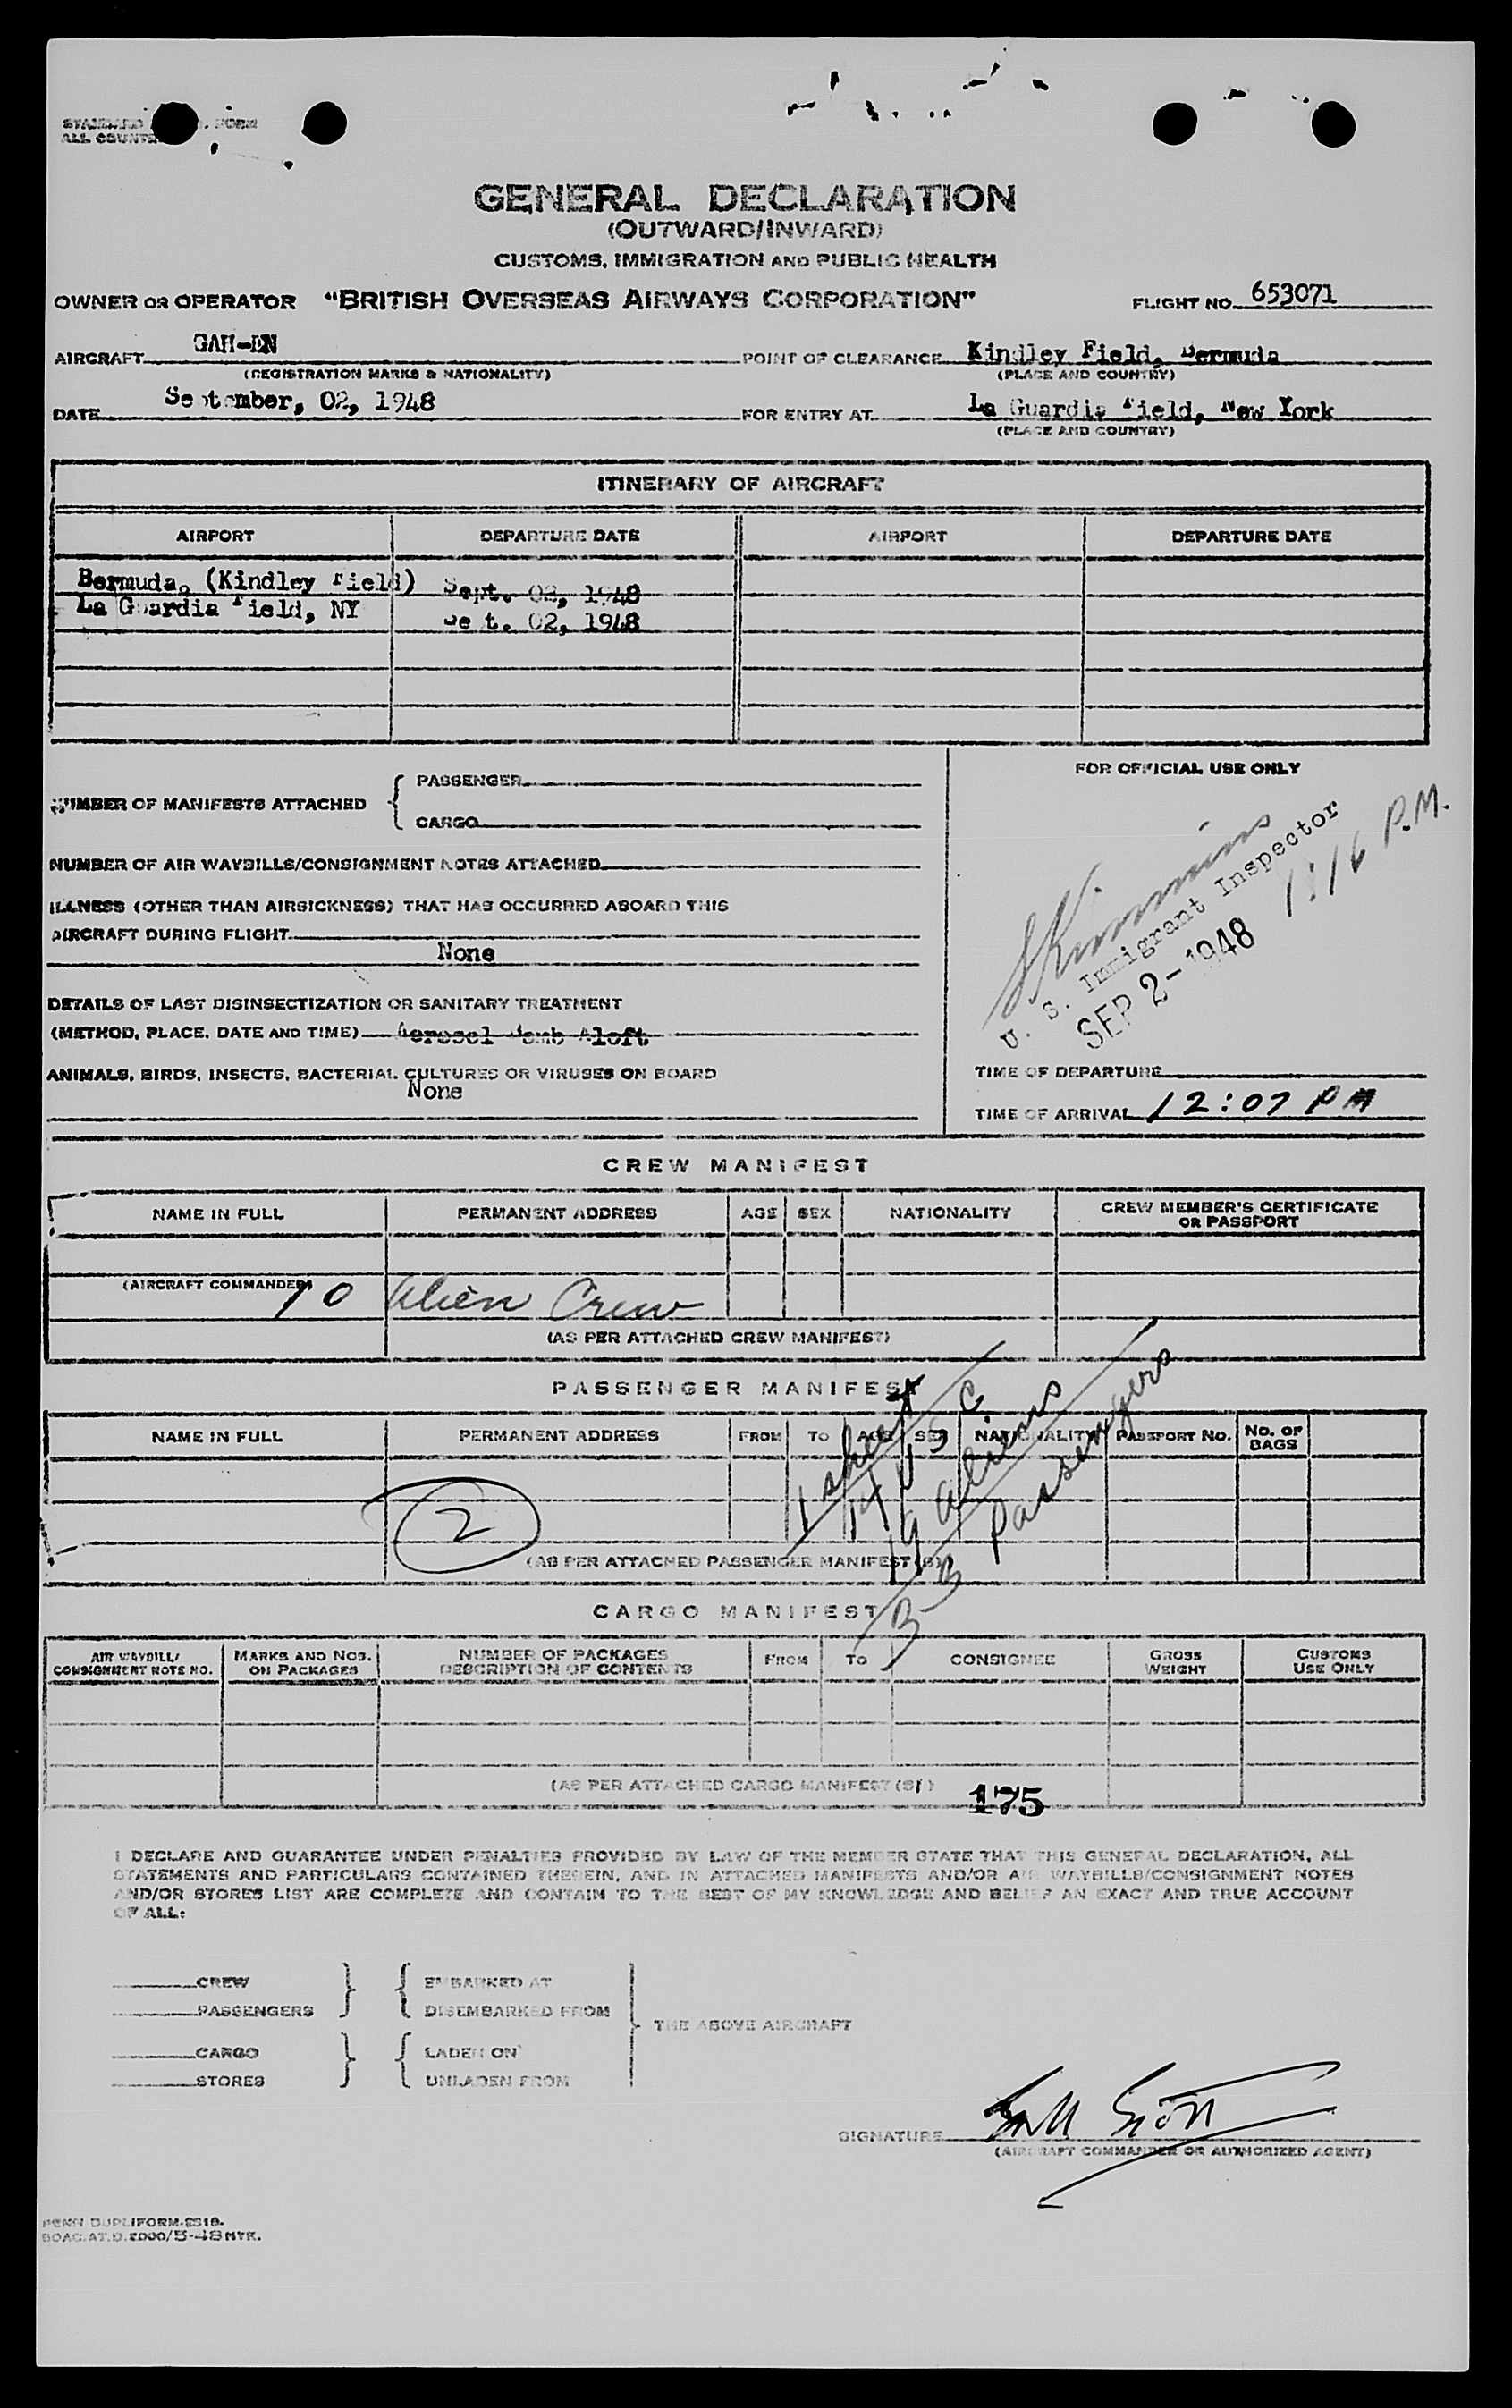 STANDARD FORM
ALL
GENERAL DECLARATION
(OUTWARD/INWARD)
CUSTOMS, IMMIGRATION AND PUBLIC HEALTH
OWNER OR OPERATOR "BRITISH OVERSEAS AIRWAYS CORPORATION" FLIGHT NO. 653071
AIRCRAFT GAH-EN POINT OF CLEARANCE Kindley Field, Bermuda
(REGISTRATION MARKS & NATIONALITY) (PLACE AND COUNTRY)
DATE September, 02, 1948 FOR ENTRY AT La Guardia Field, New York
(PLACE AND COUNTRY)
ITINERARY OF AIRCRAFT
AIRPORT DEPARTURE DATE AIRPORT DEPARTURE DATE
Bermuda. (Kindley Field) Sept. 02, 1948
La Guardia Field, NY Sept. 02, 1948
FOR OFFICIAL USE ONLY
NUMBER OF MANIFESTS ATTACHED { PASSENGER
CARGO
NUMBER OF AIR WAYBILLS/CONSIGNMENT NOTES ATTACHED
ILLNESS (OTHER THAN AIRSICKNESS) THAT HAS OCCURRED ABOARD THIS
AIRCRAFT DURING FLIGHT
None
U. S. Immigrant Inspector
SEP 2-1948 1:16 P.M.
DETAILS OF LAST DISINSECTIZATION OR SANITARY TREATMENT
(METHOD, PLACE, DATE AND TIME) Aerosol Bomb Aloft
ANIMALS, BIRDS, INSECTS, BACTERIAL CULTURES OR VIRUSES ON BOARD
None
TIME OF DEPARTURE
TIME OF ARRIVAL 12:07 PM
CREW MANIFEST
NAME IN FULL PERMANENT ADDRESS AGE SEX NATIONALITY CREW MEMBER'S CERTIFICATE OR PASSPORT
(AIRCRAFT COMMANDER)
10 Alien Crew
(AS PER ATTACHED CREW MANIFEST)
PASSENGER MANIFEST
NAME IN FULL PERMANENT ADDRESS FROM TO AGE SEX NATIONALITY PASSPORT NO. NO. OF BAGS
1 sheet
14 USC
19 aliens
33 Passengers
2
(AS PER ATTACHED PASSENGER MANIFEST(S))
CARGO MANIFEST
AIR WAYBILL/ CONSIGNMENT NOTE NO. MARKS AND NOS. ON PACKAGES NUMBER OF PACKAGES DESCRIPTION OF CONTENTS FROM TO CONSIGNEE GROSS WEIGHT CUSTOMS USE ONLY
(AS PER ATTACHED CARGO MANIFEST(S))
175
I DECLARE AND GUARANTEE UNDER PENALTIES PROVIDED BY LAW OF THE MEMBER STATE THAT THIS GENERAL DECLARATION, ALL
STATEMENTS AND PARTICULARS CONTAINED THEREIN, AND IN ATTACHED MANIFESTS AND/OR AIR WAYBILLS/CONSIGNMENT NOTES
AND/OR STORES LIST ARE COMPLETE AND CONTAIN TO THE BEST OF MY KNOWLEDGE AND BELIEF AN EXACT AND TRUE ACCOUNT
OF ALL:
CREW EMBARKED AT
PASSENGERS DISEMBARKED FROM
THE ABOVE AIRCRAFT
CARGO LADEN ON
STORES UNLADEN FROM
SIGNATURE
(AIRCRAFT COMMANDER OR AUTHORIZED AGENT)
PENN DUPLIFORM-2318-
BOAC.AT.D.2000/5-48 MTR.